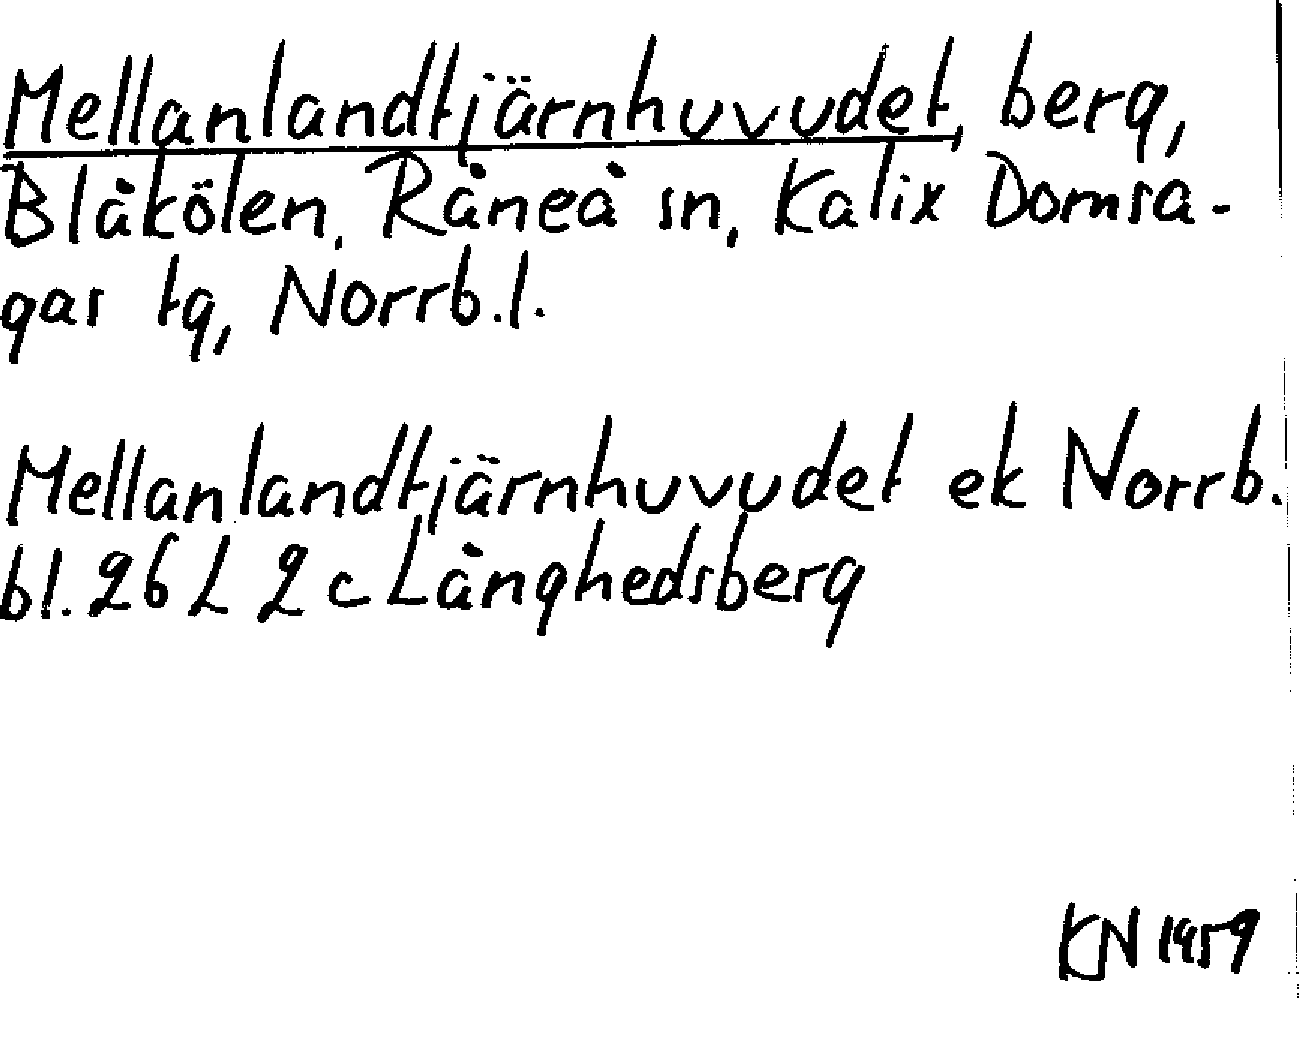 Mellanlandtjärnhuvudet, berg,
Blåkölen, Råneå sn, Kalix Domsa-
gas tg, Norrb.l.
Mellanlandtjärnhuvudet ek Norrb.
bl. 26 L 2 c Långhedsberg
KN 1959